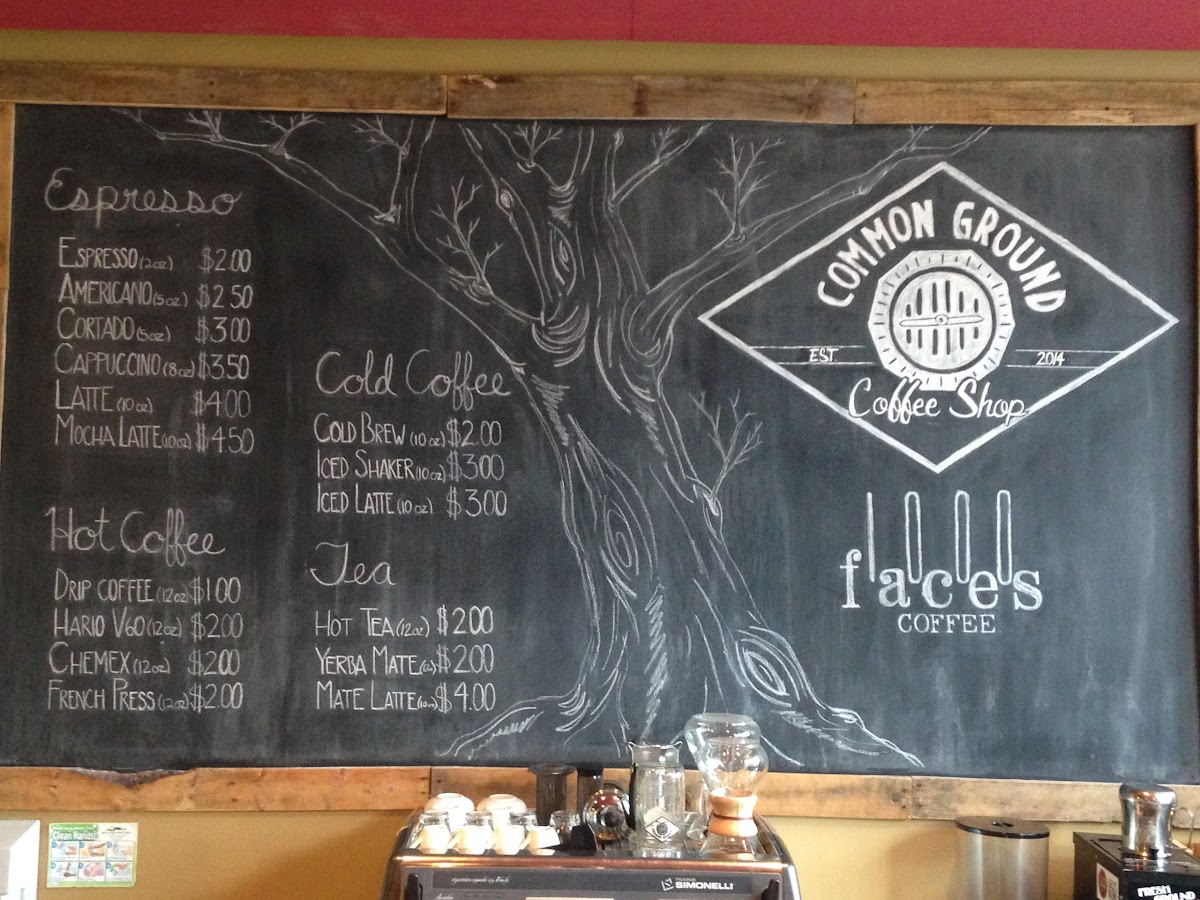 Espresso
ESPRESSO (2oz) $2.00
AMERICANO (5oz) $2.50
CORTADO (5oz) $3.00
CAPPUCCINO (8oz) $3.50
LATTE (10oz) $4.00
MOCHA LATTE (10oz) $4.50
Hot Coffee
DRIP COFFEE (12oz) $1.00
HARIO V60 (12oz) $2.00
CHEMEX (12oz) $2.00
FRENCH PRESS (12oz) $2.00
Cold Coffee
COLD BREW (10oz) $2.00
ICED SHAKER (10oz) $3.00
ICED LATTE (10oz) $3.00
Tea
HOT TEA (12oz) $2.00
YERBA MATE $2.00
MATE LATTE (10oz) $4.00
COMMON GROUND
EST. 2014
Coffee Shop
faces
COFFEE
Clean Hands!
SIMONELLI
FRESH
GROUND